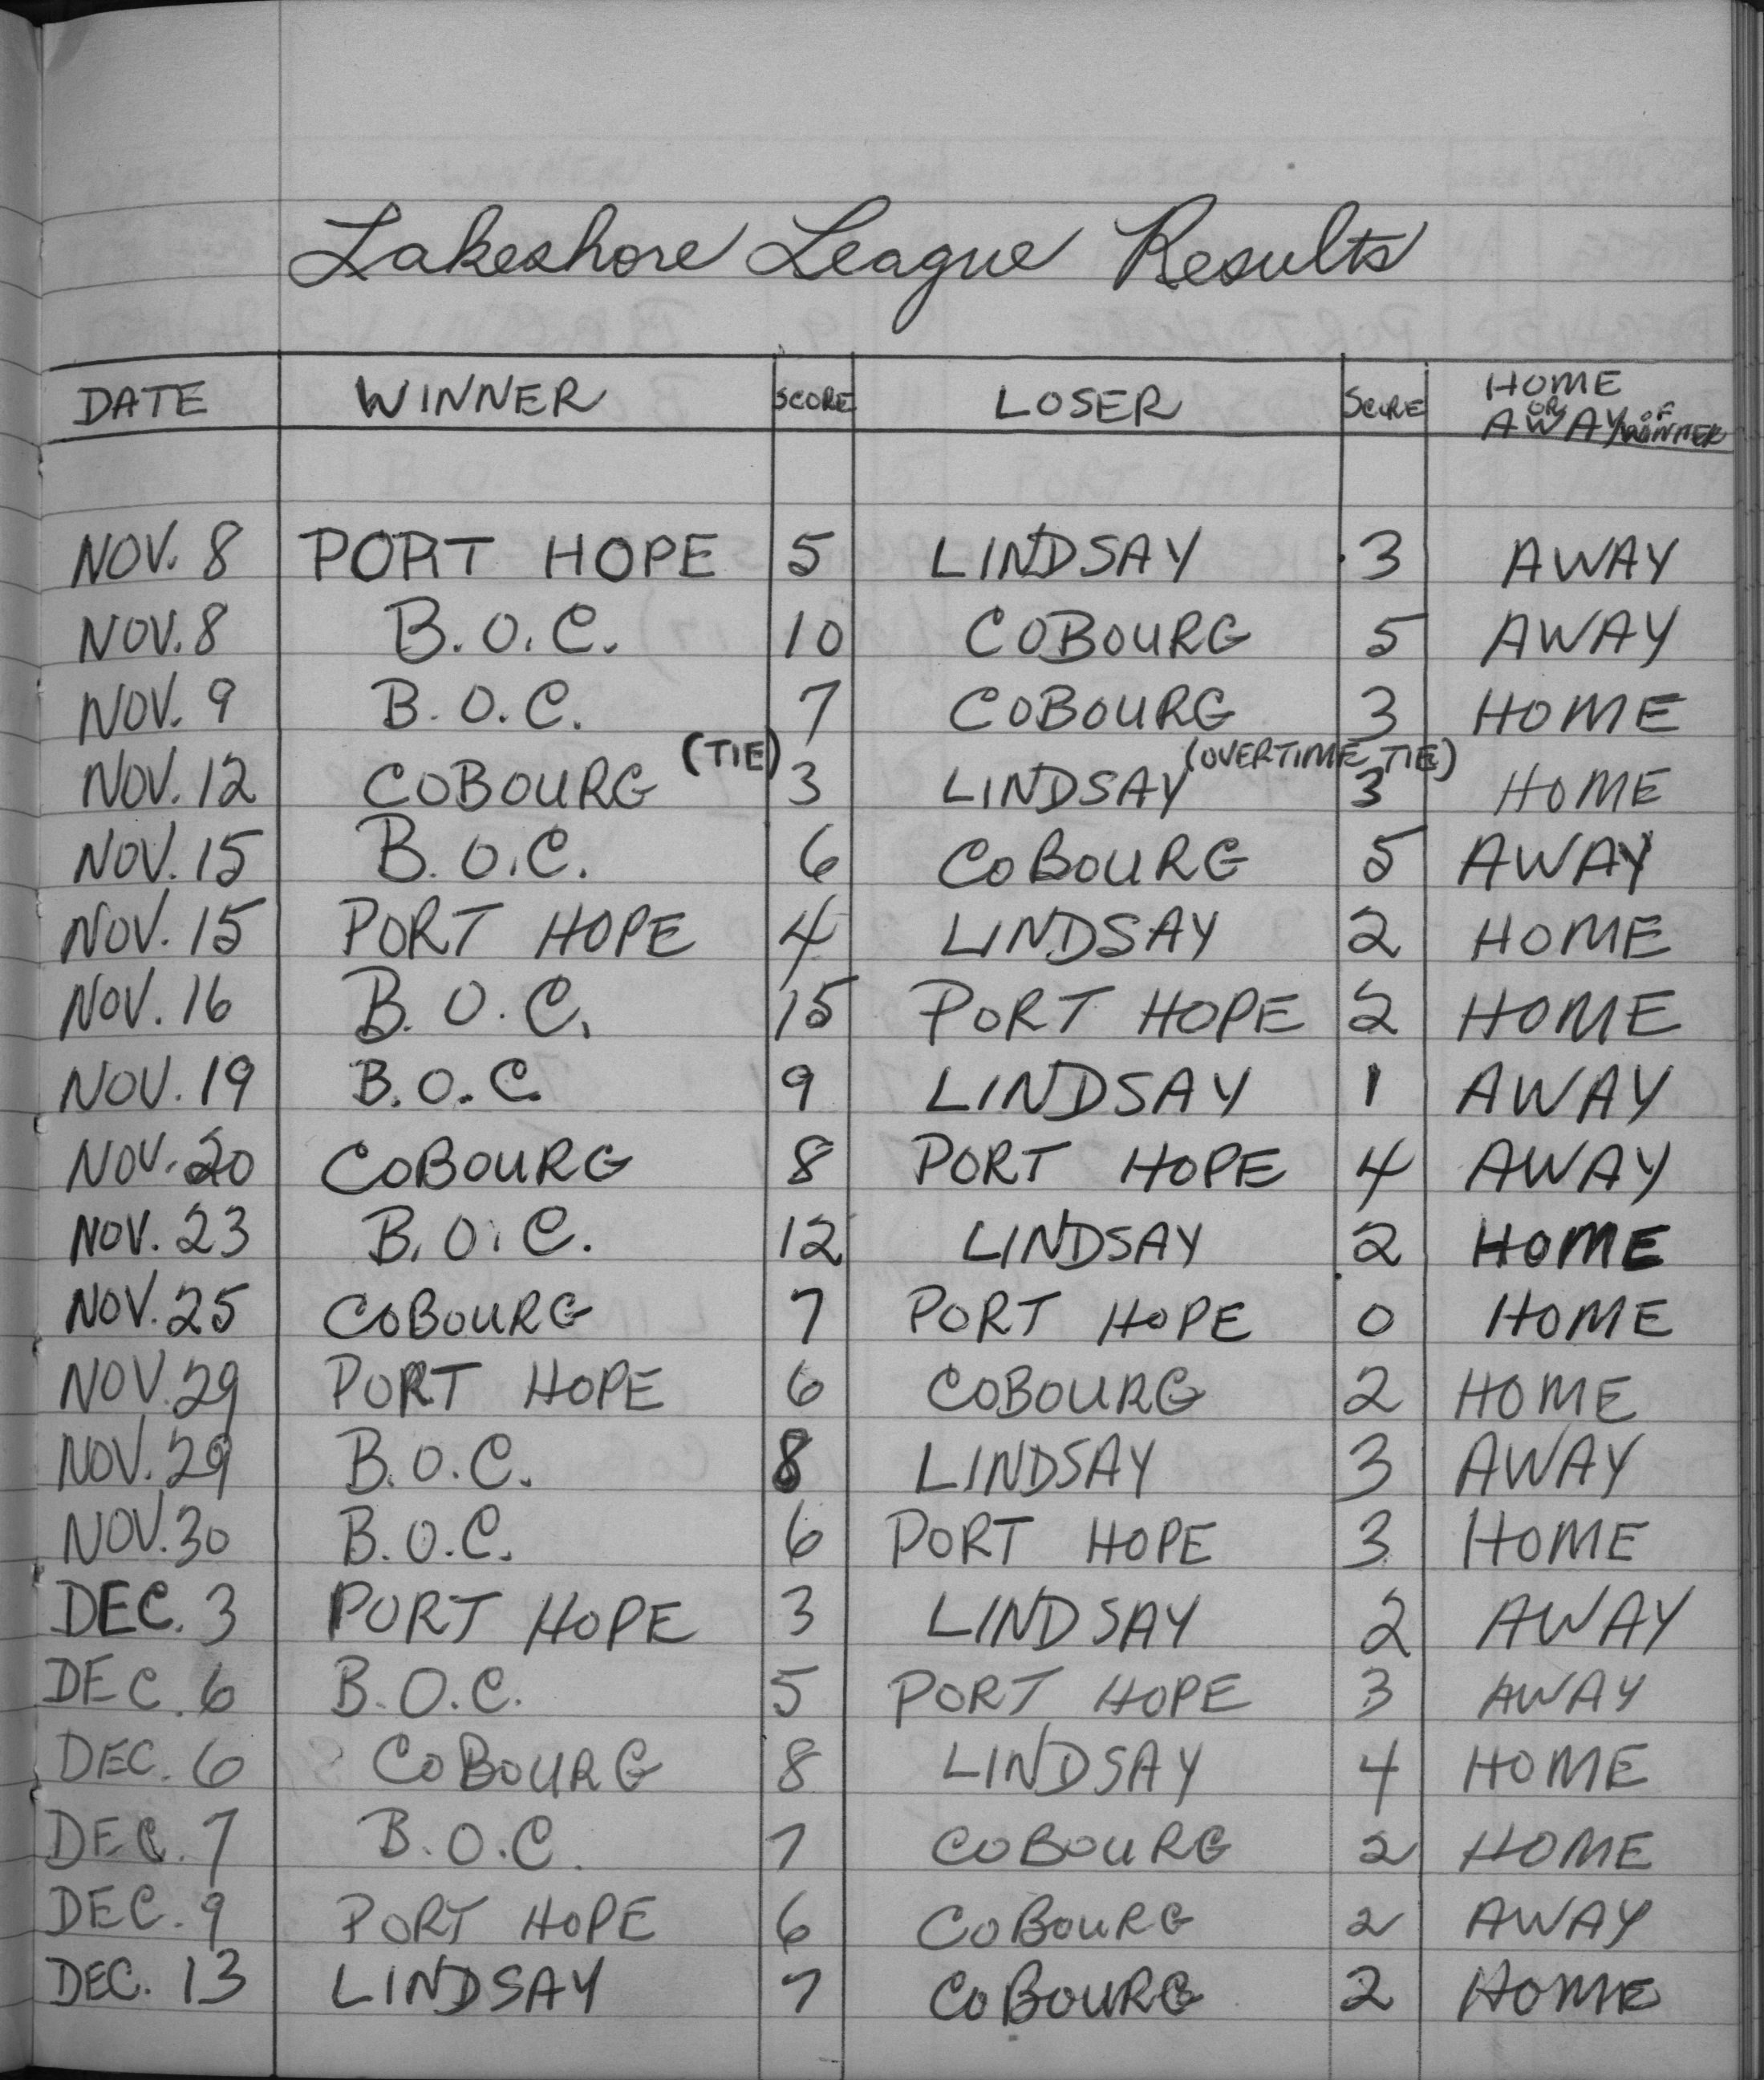 Lakeshore League Results
DATE WINNER SCORE LOSER SCORE HOME OR AWAY OF WINNER
NOV. 8 PORT HOPE 5 LINDSAY 3 AWAY
NOV. 8 B.O.C. 10 COBOURG 5 AWAY
NOV. 9 B.O.C. 7 COBOURG 3 HOME
NOV. 12 COBOURG (TIE) 3 LINDSAY (OVERTIME TIE) 3 HOME
NOV. 15 B.O.C. 6 COBOURG 5 AWAY
NOV. 15 PORT HOPE 4 LINDSAY 2 HOME
NOV. 16 B.O.C. 15 PORT HOPE 2 HOME
NOV. 19 B.O.C. 9 LINDSAY 1 AWAY
NOV. 20 COBOURG 8 PORT HOPE 4 AWAY
NOV. 23 B.O.C. 12 LINDSAY 2 HOME
NOV. 25 COBOURG 7 PORT HOPE 0 HOME
NOV. 29 PORT HOPE 6 COBOURG 2 HOME
NOV. 29 B.O.C. 8 LINDSAY 3 AWAY
NOV. 30 B.O.C. 6 PORT HOPE 3 HOME
DEC. 3 PORT HOPE 3 LINDSAY 2 AWAY
DEC. 6 B.O.C. 5 PORT HOPE 3 AWAY
DEC. 6 COBOURG 8 LINDSAY 4 HOME
DEC. 7 B.O.C. 7 COBOURG 2 HOME
DEC. 9 PORT HOPE 6 COBOURG 2 AWAY
DEC. 13 LINDSAY 7 COBOURG 2 HOME